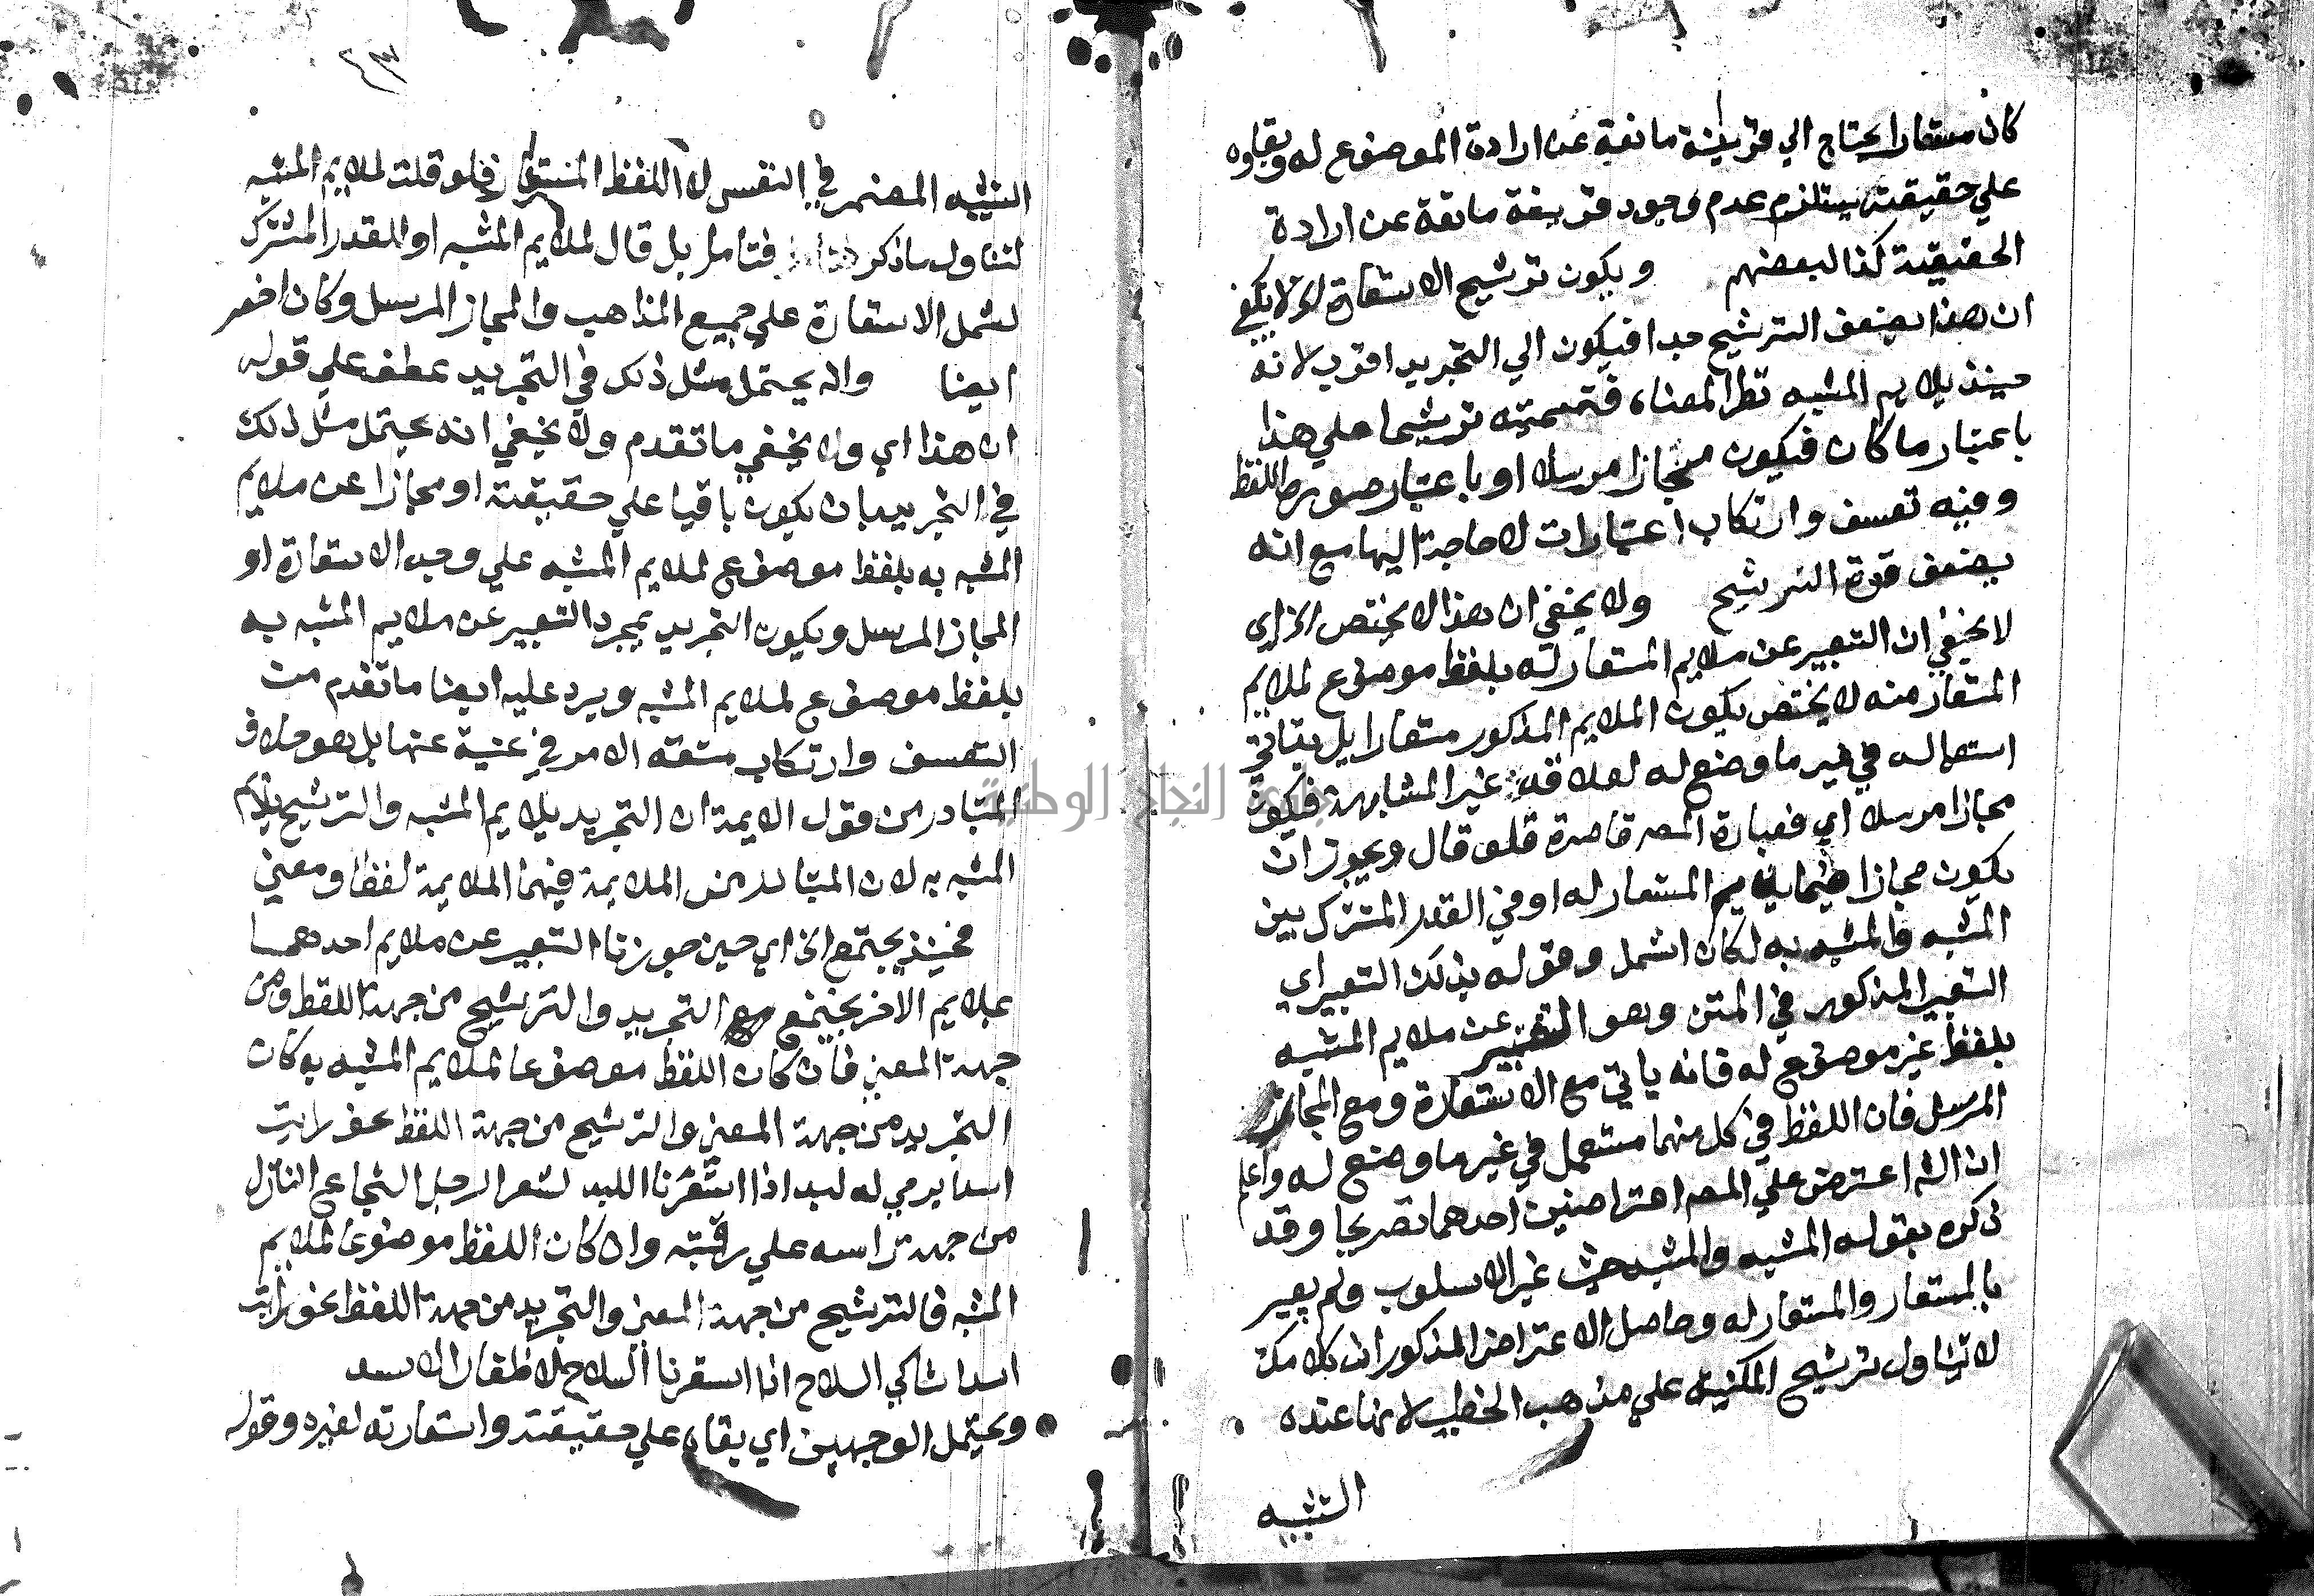 كان مستعارا يحتاج الي قرينة مانعة عن ارادة الموضوع له وبقاوه
علي حقيقته يستلزم عدم وجود قرينة مانعة عن ارادة
الحقيقة كذا لبعضهم ويكون ترشيح الاستعارة الخ لا يخفي
ان هذا يضعف الترشيح جدا فيكون الي التجريد اقرب لانه
حينئذ يلايم المشبه نظرا لمعناه فتسميته ترشيحا علي هذا
باعتبار ما كان فيكون مجازا مرسلا او باعتبار صورة اللفظ
وفيه تعسف وارتكاب اعتبارات لا حاجة اليها مع انه
يضعف قوة الترشيح ولا يخفي ان هذا لا يختص الخ اي
لا يخفي ان التعبير عن ملايم المستعار له بلفظ موضوع لملايم
المستعار منه لا يختص بكون الملايم المذكور مستعارا بل يتاتي
استعماله في غير ما وضع له لعلاقة غير المشابهة فيكون
مجازا مرسلا اي فعبارة المصـ قاصرة فلو قال ويجوز ان
يكون مجازا فيما يلايم المستعار له او في القدر المشترك بين
المشبه والمشبه به لكان اشمل وقوله بذلك التعبير اي
التعبير المذكور في المتن وهو التعبير عن ملايم المشبه
بلفظ غير موضوع له فانه ياتي مع الاستعارة ومع المجاز
المرسل فان اللفظ في كل منهما مستعمل في غير ما وضع له واعلم
ان الشـ اعترض علي المصـ اعتراضين احدهما تصريحا وقد
ذكره بقوله المشبه والمشبه حيث غير الاسلوب ولم يعبر
بالمستعار والمستعار له وحاصل الاعتراض المذكور ان كلامك
لا يتناول ترشيح المكنية علي مذهب الخطيب لانها عنده
التشبيه
التشبيه المضمر في النفس لا اللفظ المستعار فلو قلت لملايم المشبه
لتناول ما ذكر فتامل بل قال لملايم المشبه او للقدر المشترك
لشمل الاستعارة علي جميع المذاهب والمجاز المرسل وكان اخصر
ايضا وانه يحتمل مثل ذلك في التجريد عطف علي قوله
ان هذا اي ولا يخفي ما تقدم ولا يخفي انه يحتمل مثل ذلك
في التجريد بان يكون باقيا علي حقيقته او مجازا عن ملايم
المشبه به بلفظ موضوع لملايم المشبه علي وجه الاستعارة او
المجاز المرسل ويكون التجريد بمجرد التعبير عن ملايم المشبه به
بلفظ موضوع لملايم المشبه ويرد عليه ايضا ما تقدم من
التعسف وارتكاب مشقة الامر في غنية عنها بل هو خلاف
المتبادر من قول الايمة ان التجريد يلايم المشبه والترشيح يلايم
المشبه به لان المتبادر من الملايمة فيهما الملايمة لفظا ومعني
فحينئذ يجتمع الخ اي حين جوزنا التعبير عن ملايم احدهما
بملايم الاخر يجتمع مع التجريد والترشيح من جهة اللفظ ومن
جهة المعني فان كان اللفظ موضوعا لملايم المشبه به كان
التجريد من جهة المعني والترشيح من جهة اللفظ نحو رايت
اسدا يرمي له لبد اذا استعرنا اللبد لشعر الرجل الشجاع النازل
من جهة راسه علي رقبته وان كان اللفظ موضوعا لملايم
المشبه فالترشيح من جهة المعني والتجريد من جهة اللفظ نحو رايت
اسدا شاكي السلاح اذا استعرنا السلاح لاظفار الاسد
ويحتمل الوجهين اي بقاه علي حقيقته واستعارته لغيره وقوله
جامعة النجاح الوطنية